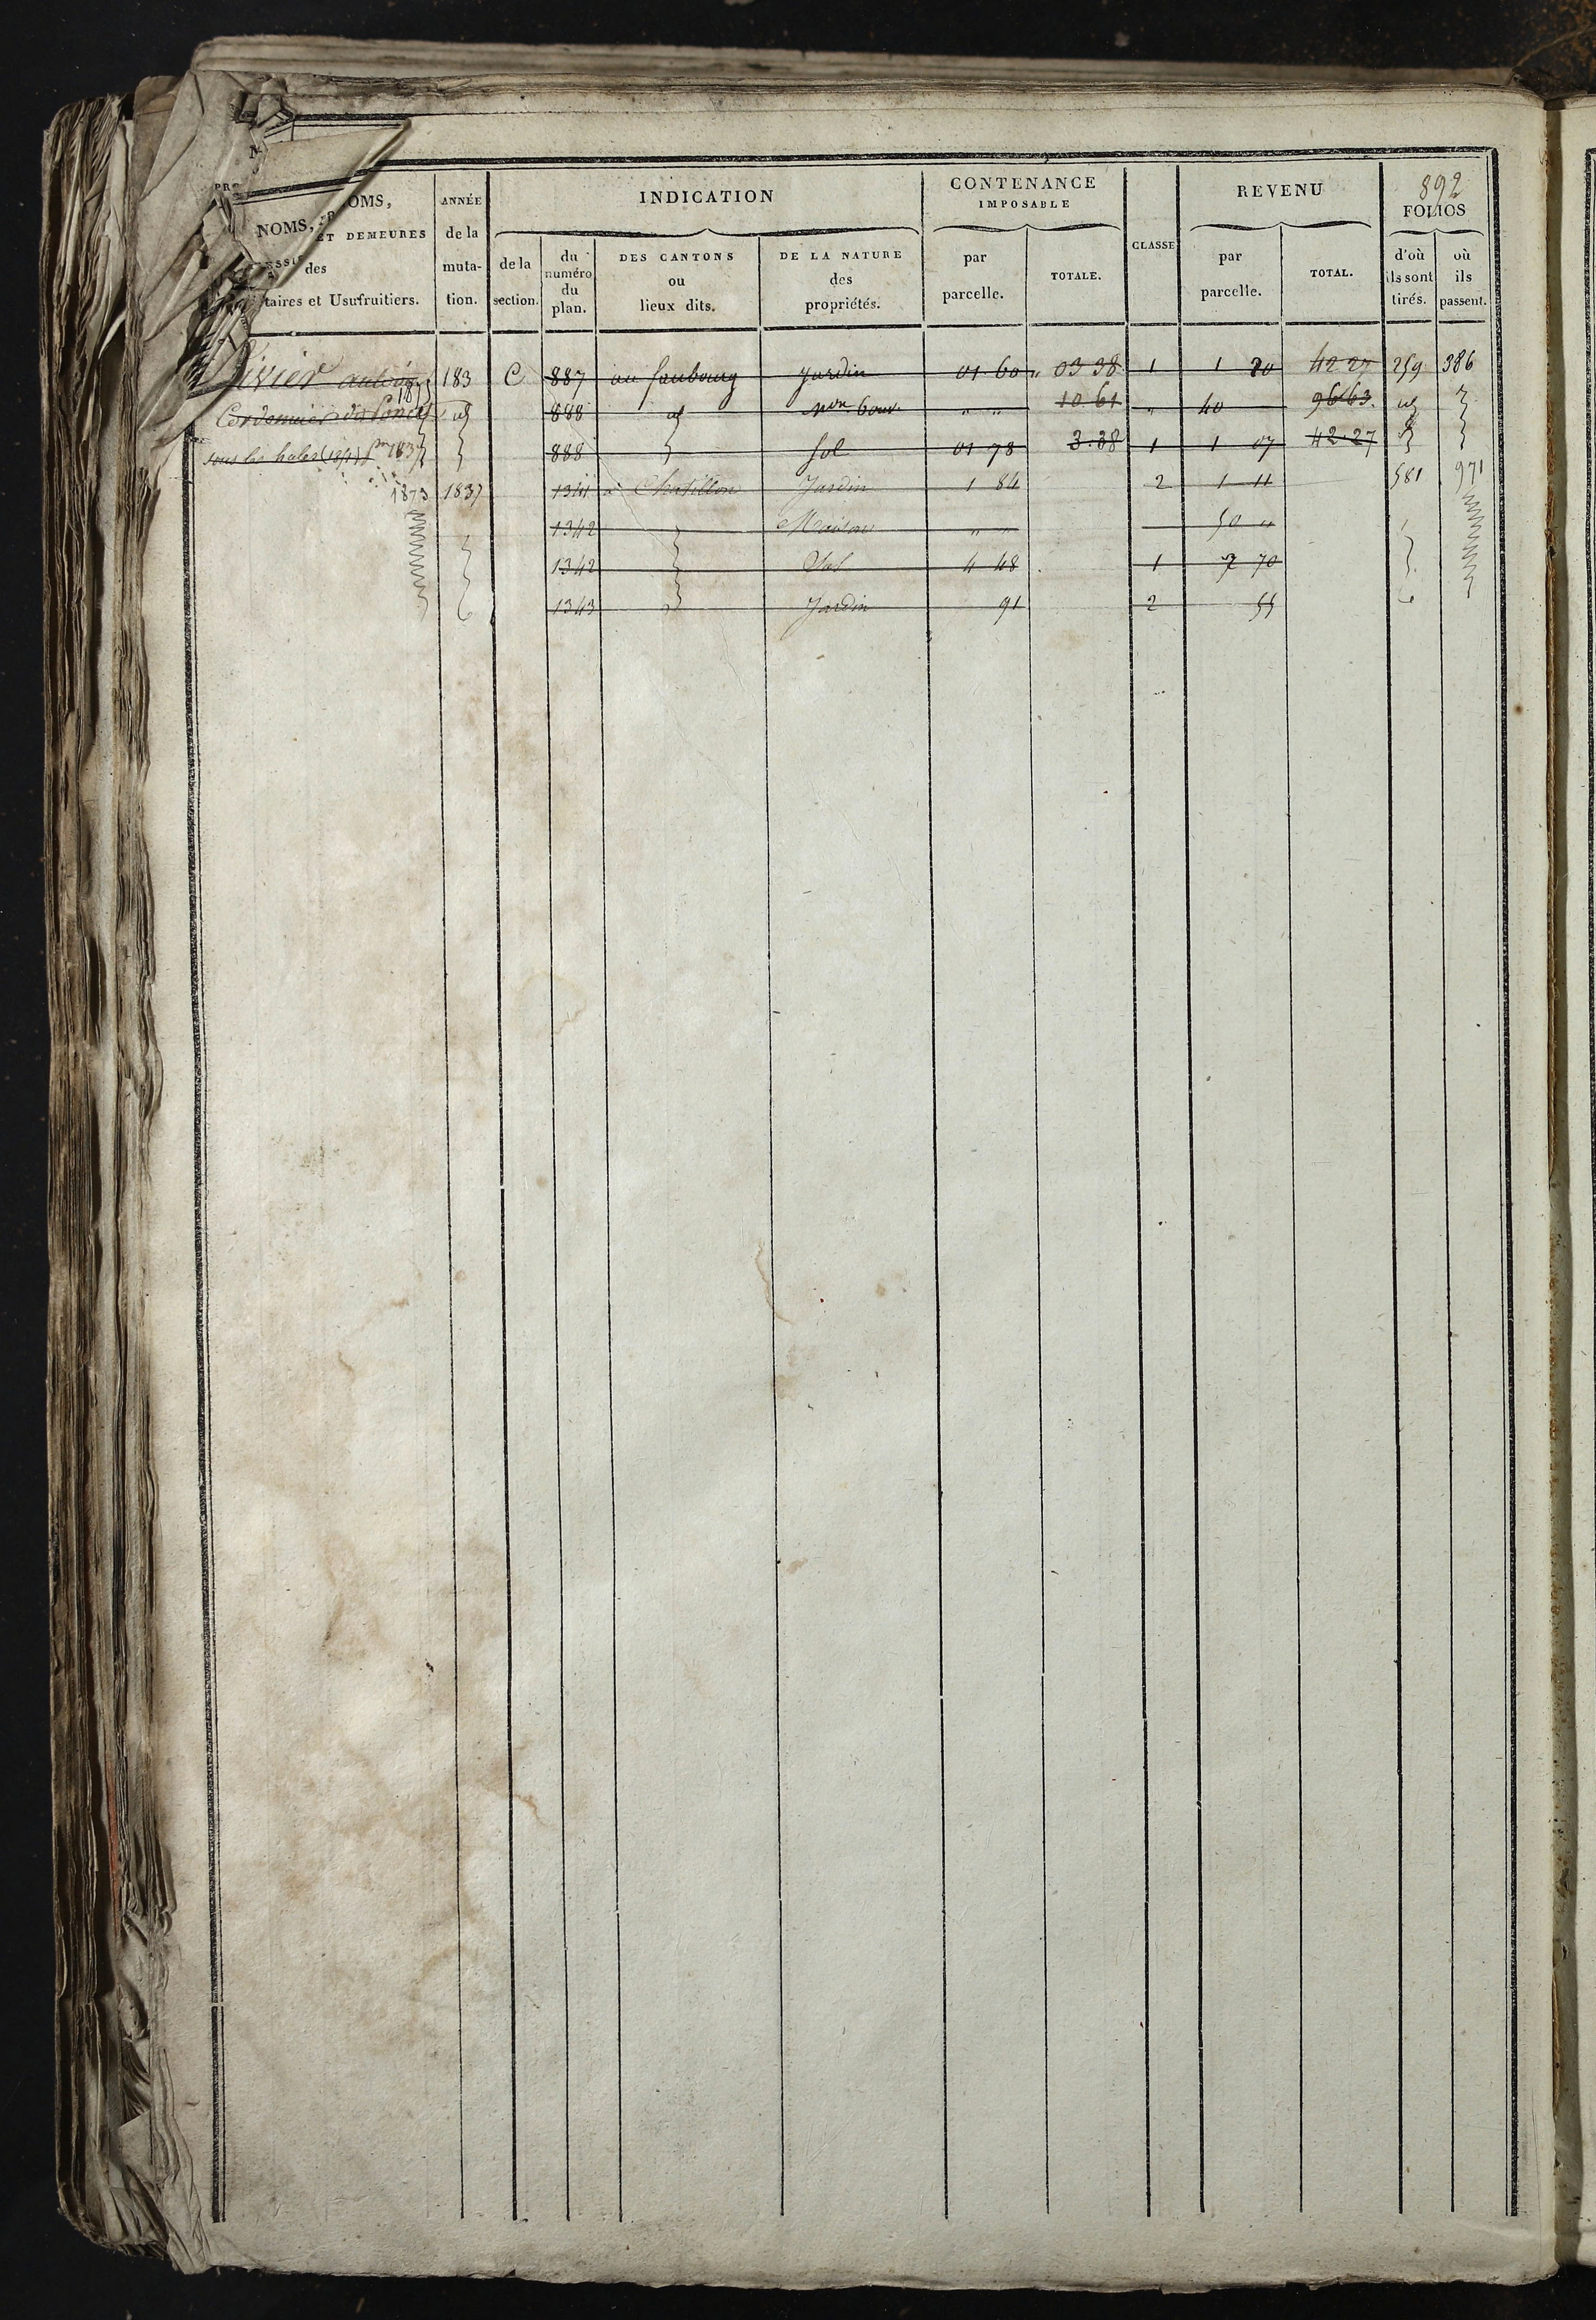 892
NOMS, OMS,
ET DEMEURES
des
taires et Usufruitiers.
ANNÉE de la muta- tion.
INDICATION
de la section.
du numéro du plan.
DES CANTONS ou lieux dits.
DE LA NATURE des propriétés.
CONTENANCE IMPOSABLE
par parcelle.
TOTALE.
CLASSE
REVENU
par parcelle.
TOTAL.
FOLIOS
d'où ils sont tirés.
où ils passent.
ivier 183 C 887 au faubourg Jardin 01 60 03 38 1 1 20 42 27 259 386
Cordonnier 888 id 10 61 " 40 96 63 id
sous les hales 1837 888 sol 01 78 3.38 1 1 07 42.27
1873 1837 1341 à Chatillon Jardin 1 84 2 1 11 581 971
1342 Maison " " 50 "
1342 Sol 4 48 1 2 70
1343 Jardin 91 2 55